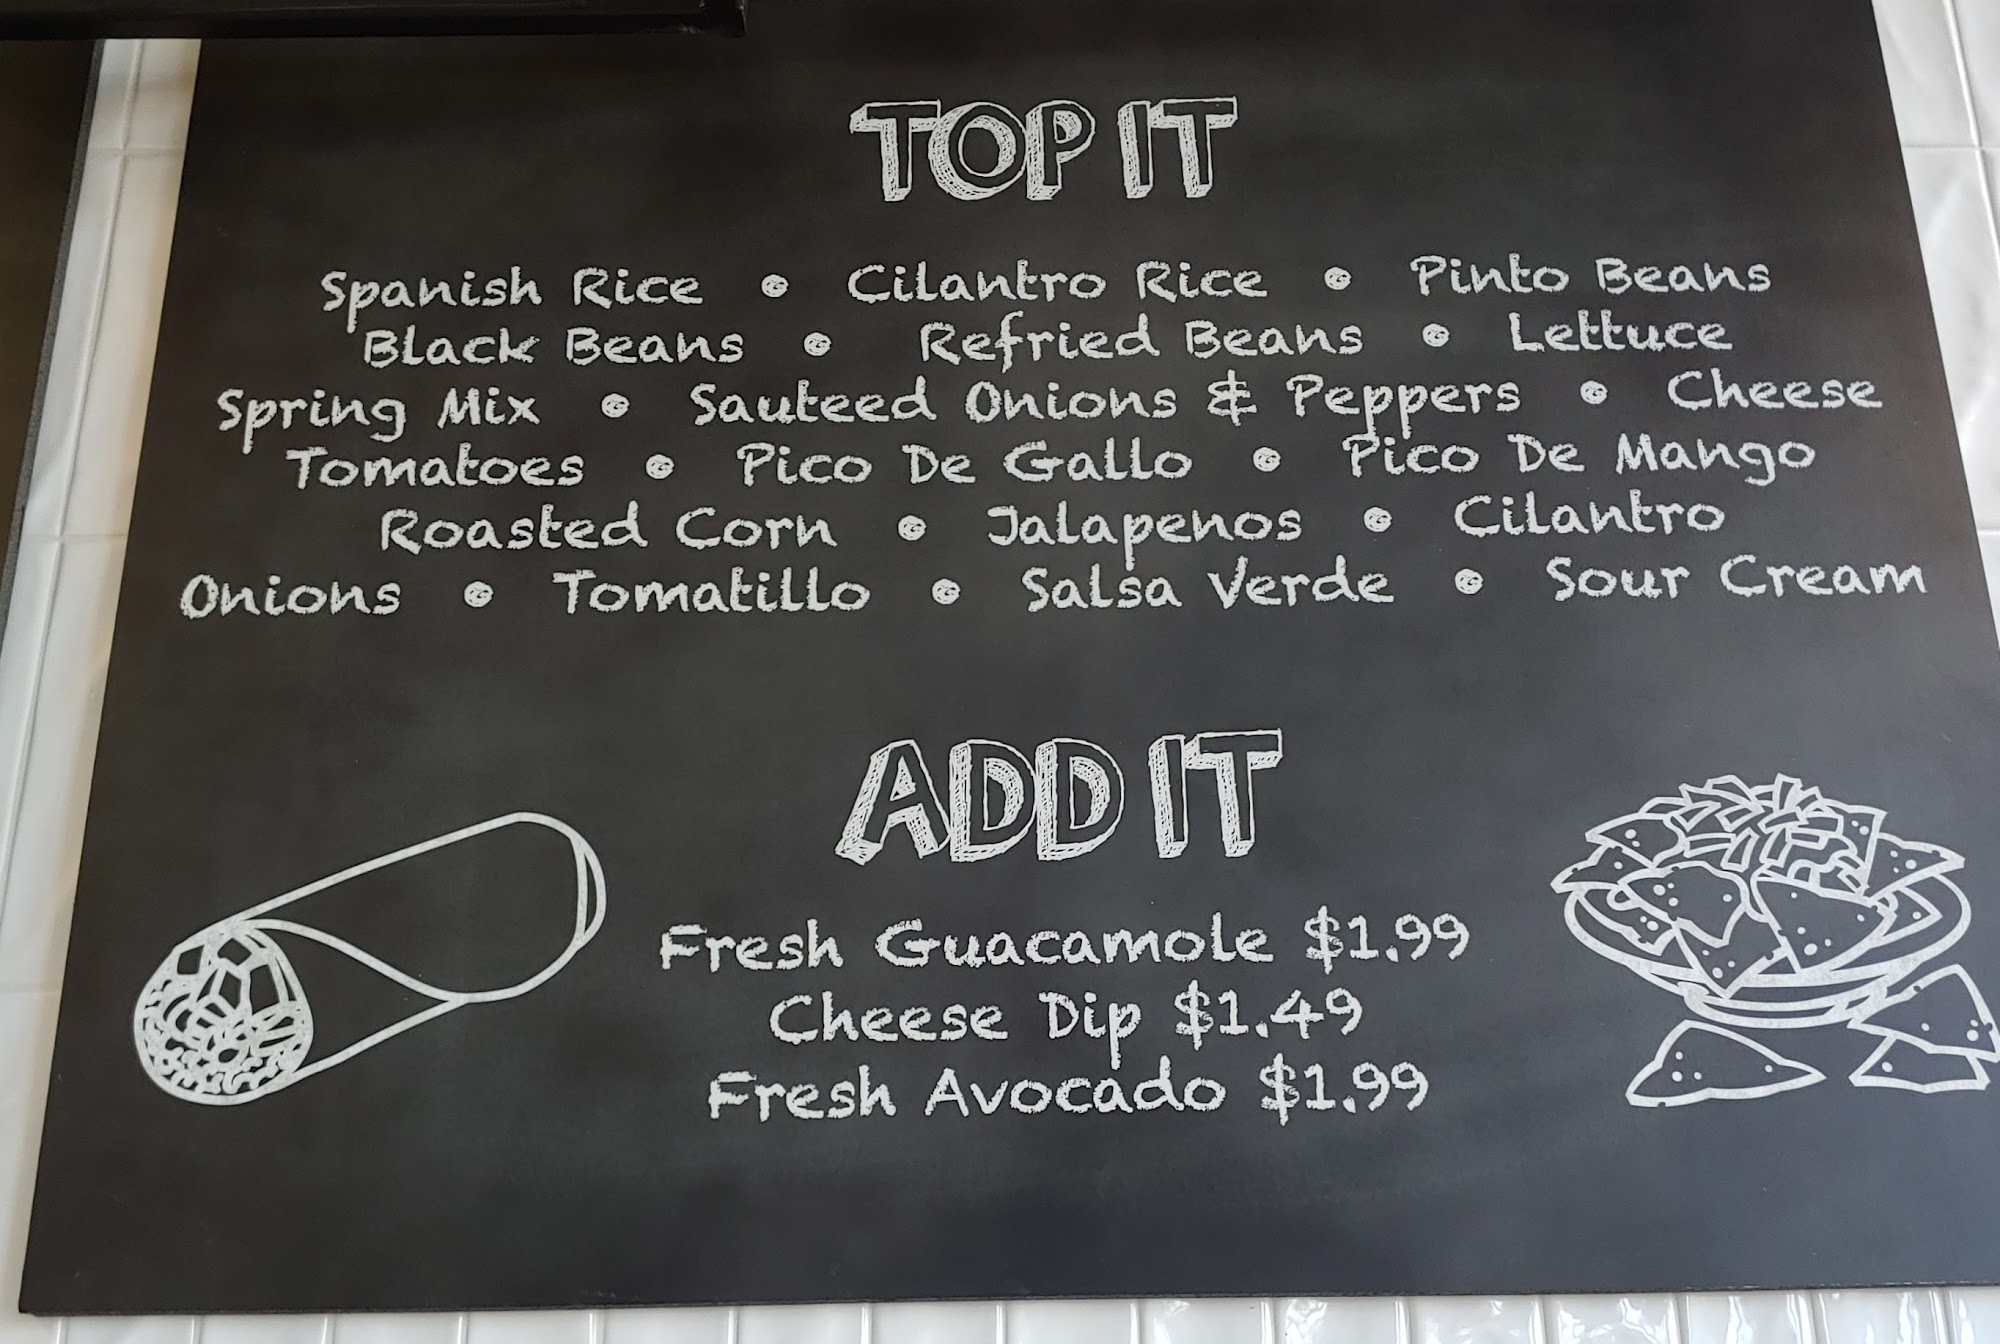 TOP IT
Spanish Rice • Cilantro Rice • Pinto Beans
Black Beans • Refried Beans • Lettuce
Spring Mix • Sauteed Onions & Peppers • Cheese
Tomatoes • Pico De Gallo • Pico De Mango
Roasted Corn • Jalapenos • Cilantro
Onions • Tomatillo • Salsa Verde • Sour Cream
ADD IT
Fresh Guacamole $1.99
Cheese Dip $1.49
Fresh Avocado $1.99